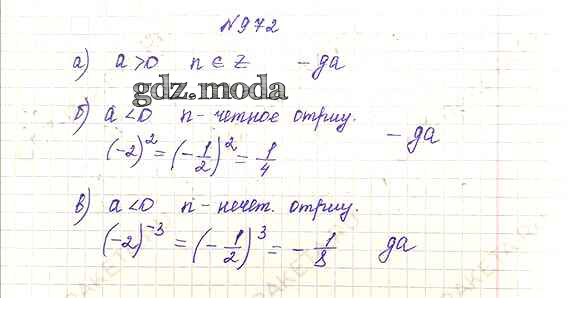 №972
а) a>0 n∈Z - да
gdz.moda
б) a<0 n- четное отриц.
(-2)² = (-1/2)² = 1/4 - да
в) a<0 n- нечет. отриц.
(-2)⁻³ = (-1/2)³ = -1/8 да